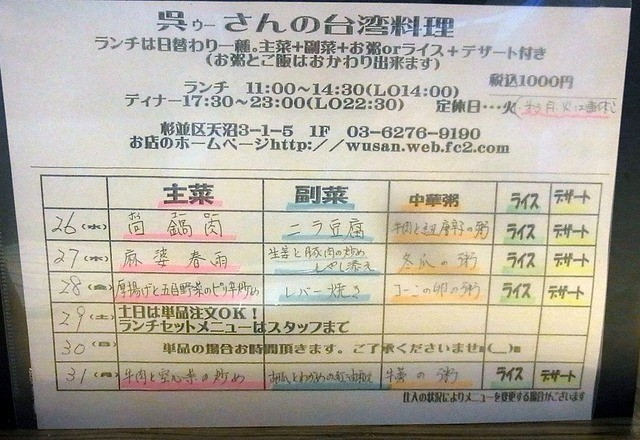 呉ゥーさんの台湾料理
ランチは日替わり一種。主菜+副菜+お粥orライス+デザート付き
(お粥とご飯はおかわり出来ます)
税込1000円
ランチ 11:00~14:30(LO14:00)
ディナー17:30~23:00(LO22:30) 定休日・・・火
杉並区天沼3-1-5 1F 03-6276-9190
お店のホームページhttp://wusan.web.fc2.com
主菜 副菜 中華粥 ライス デザート
26(水) 鍋肉 ニラ豆腐 牛肉と の粥 ライス デザート
27(木) 麻婆春雨 生姜と豚肉の炒め もやし添え 冬瓜の粥 ライス デザート
28(金) 厚揚げと五目野菜のピリ辛炒め レバー焼き の卵の粥 ライス デザート
29(土) 土日は単品注文OK!
ランチセットメニューはスタッフまで
30(日) 単品の場合お時間頂きます。ご了承くださいませm(__)m
31(月) 牛肉と空心菜の炒め わかめの 牛蒡の粥 ライス デザート
仕入の状況によりメニューを変更する場合がございます